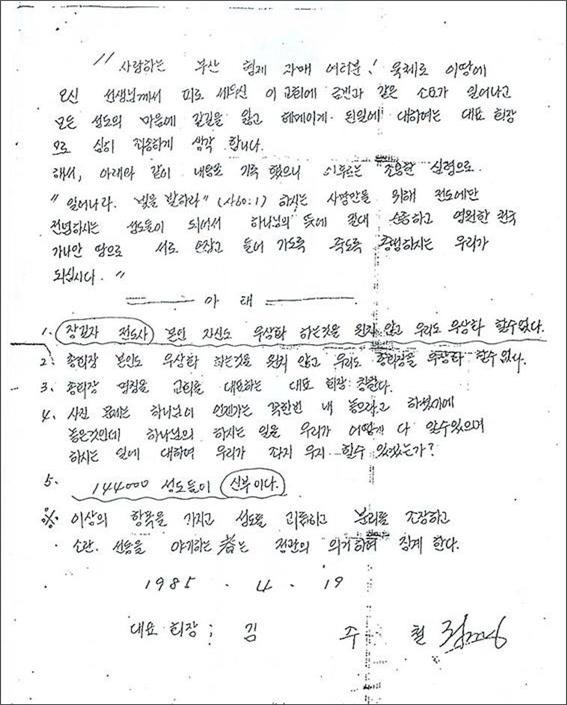 " 사랑하는 부산 형제 자매 여러분! 육체로 이땅에
오신 선생님께서 피로 세우신 이 교회에 금번과 같은 소요가 일어나고
모든 성도의 마음에 갈길을 잃고 헤메이게 된일에 대하여는 대표 회장
으로 심히 죄송하게 생각 합니다.
해서, 아래와 같이 내용을 기록 했으니 이후로는 조용한 심령으로
"일어나라. 빛을 발하라" (사60:1) 하시는 사명만을 위해 전도에만
전념하시는 성도들이 되어서 하나님의 뜻에 절대 순종하고 영원한 천국
가나안 땅으로 서로 손잡고 들어 가도록 죽도록 충성하시는 우리가
되십시다. "
아 래
1. 장길자 전도사 본인 자신도 우상화 하는것을 원치 않고 우리도 우상화 할수없다.
2. 총회장 본인도 우상화 하는것을 원치 않고 우리도 총회장을 우상화 할수 없다.
3. 총회장 명칭을 교회를 대표하는 대표 회장 칭한다.
4. 사진 문제는 하나님이 언젠가는 꼭한번 내 놓으라고 하셨기에
놓은것인데 하나님의 하시는 일을 우리가 어떻게 다 알수있으며
하시는 일에 대하여 우리가 좌지 우지 할수 있겠는가?
5. 144000 성도들이 신부이다.
※ 이상의 항목을 가지고 성도를 괴롭히고 분리를 조장하고
소란. 선동을 야기하는 者는 정관의 의거하여 징계 한다.
1985 . 4 . 19
대표 회장 ; 김 주 철